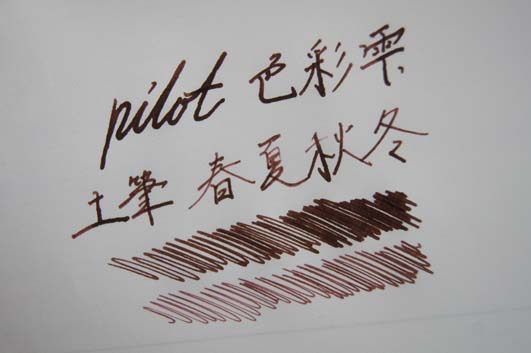 pilot 色彩雫
土筆 春夏秋冬